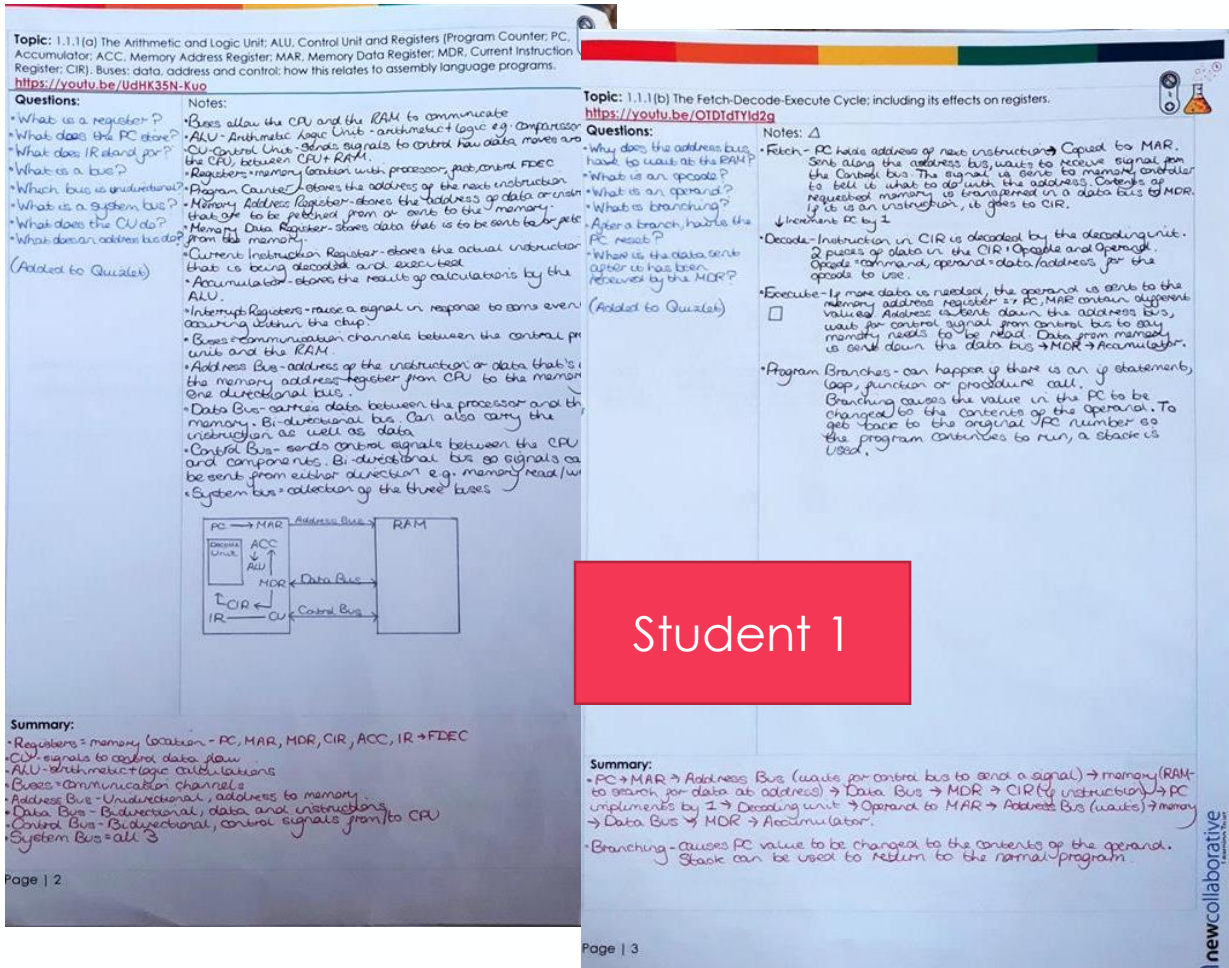 Topic: 1.1.1(a) The Arithmetic and Logic Unit; ALU, Control Unit and Registers (Program Counter; PC,
Accumulator; ACC, Memory Address Register; MAR, Memory Data Register; MDR, Current Instruction
Register; CIR). Buses: data, address and control: how this relates to assembly language programs.
https://youtu.be/UdHK35N-Kuo
Questions:
•What is a register?
•What does the PC store?
•What does IR stand for?
•What is a bus?
•Which bus is unidirectional?
•What is a system bus?
•What does the CU do?
•What does an address bus do?
(Added to Quizlet)
Notes:
•Buses allow the CPU and the RAM to communicate
•ALU-Arithmetic Logic Unit-arithmetic+logic eg. comparison
•CU-Control Unit-sends signals to control how data moves
the CPU, between CPU+RAM.
•Registers=memory location with processor, fast, control FDEC
•Program Counter-stores the address of the next instruction
•Memory Address Register-stores the address of data or
that are to be fetched from or sent to the memory.
•Memory Data Register-stores data that is to be sent to or
from the memory.
•Current Instruction Register-stores the actual instruction
that is being decoded and executed
•Accumulator-stores the result of calculations by the
ALU.
•Interrupt Registers-raise a signal in response to some
occuring within the chip.
•Buses=communication channels between the central
unit and the RAM.
•Address Bus-address of the instruction or data that's
the memory address register from CPU to the
One directional bus.
•Data Bus-carries data between the processor and
memory. Bi-directional bus. Can also carry the
instruction as well as data
•Control Bus-sends control signals between the CPU
and components. Bi-directional bus so signals
be sent from either direction e.g. memory read/
•System bus=collection of the three buses
PC → MAR Address Bus RAM
Decode Unit ACC
ALU
MDR Data Bus
CIR
IR CU Control Bus
Summary:
•Registers=memory location-PC, MAR, MDR, CIR, ACC, IR→FDEC
•CU-signals to control data flow
•ALU-arithmetic+logic calculations
•Buses=communication channels
•Address Bus-Unidirectional, address to memory.
•Data Bus-Bidirectional, data and instructions
•Control Bus-Bidirectional, control signals from/to CPU
•System Bus=all 3
Page | 2
Topic: 1.1.1(b) The Fetch-Decode-Execute Cycle; including its effects on registers.
https://youtu.be/OTDTdTYld2g
Questions:
•Why does the address bus
have to wait at the RAM?
•What is an opcode?
•What is an operand?
•What is branching?
•After a branch, how is the
PC reset?
•Where is the data sent
after it has been
received by the MDR?
(Added to Quizlet)
Notes: △
•Fetch- PC holds address of next instruction→ Copied to MAR.
Sent along the address bus, waits to receive signal from
the Control bus. The signal is sent to memory controller
to tell it what to do with the address. Contents of
requested memory is transferred in a data bus to MDR.
If it is an instruction, it goes to CIR.
↓Increment PC by 1
•Decode-Instruction in CIR is decoded by the decoding unit.
2 pieces of data in the CIR: Opcode and Operand.
Opcode=command, operand=data/address for the
opcode to use.
•Execute-If more data is needed, the operand is sent to the
memory address register => PC, MAR contain different
values. Address is sent down the address bus,
wait for control signal from control bus to say
memory needs to be read. Data from memory
is sent down the data bus →MDR →Accumulator.
•Program Branches-can happen if there is an if statement,
loop, function or procedure call.
Branching causes the value in the PC to be
changed to the contents of the operand. To
get back to the original PC number so
the program continues to run, a stack is
used.
Student 1
Summary:
•PC→MAR→Address Bus (waits for control bus to send a signal)→memory(RAM-
to search for data at address)→Data Bus→MDR→CIR(if instruction)→PC
impliments by 1→Decoding unit→Operand to MAR→Address Bus (waits)→memory
→Data Bus→MDR→Accumulator.
•Branching-causes PC value to be changed to the contents of the operand.
Stack can be used to return to the normal program.
Page | 3
newcollaborative